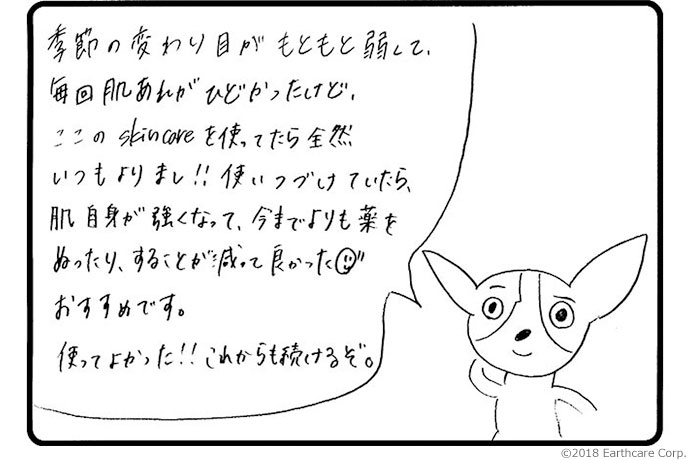 季節の変わり目がもともと弱くて、
毎回肌あれがひどかったけど、
ここのskincareを使ってたら全然
いつもよりまし!!使いつづけていたら、
肌自身が強くなって、今までよりも薬を
ぬったり、することが減って良かった☺"
おすすめです。
使ってよかった!!これからも続けるぞ。
©2018 Earthcare Corp.